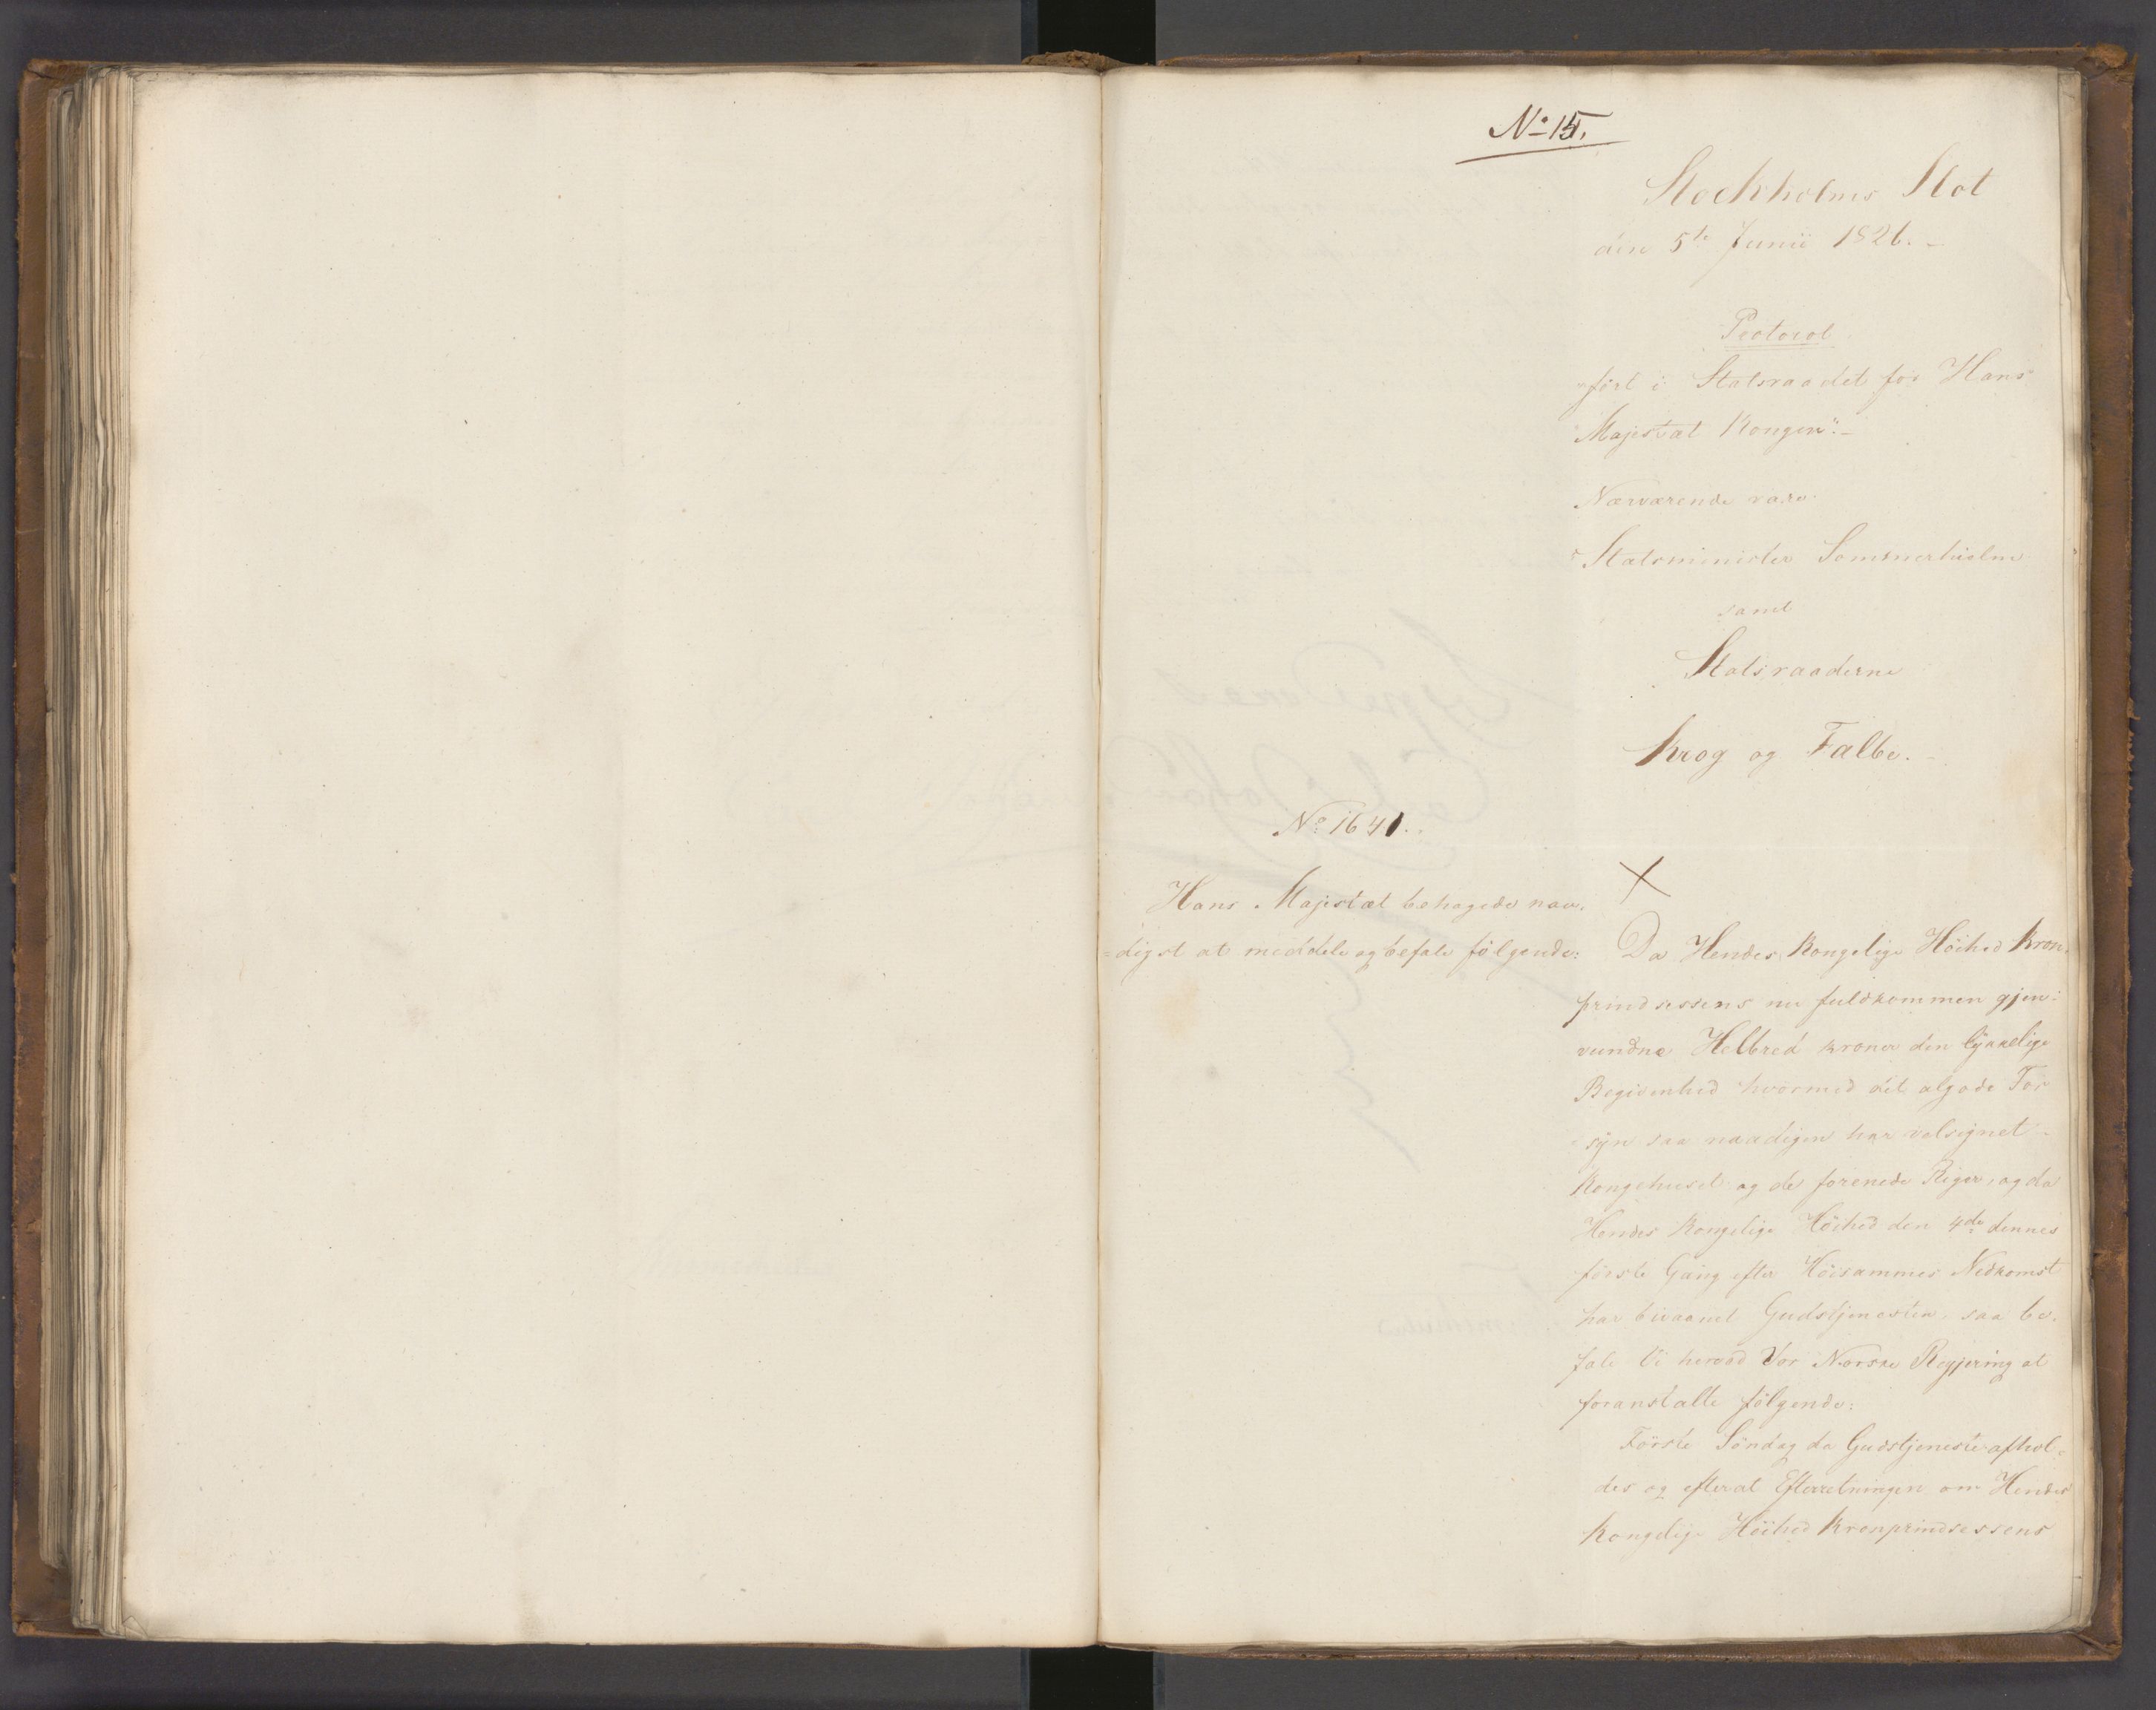 No 15.
Stockholms Slot
den 5te Junii 1826.
Protocol
"fört i Statsraadet for Hans
Majestæt Kongen".
Nærværende vare
Statsminister Sommerhielm
samt
Statsraaderne
Krog og Falbe.
No 1641.
Hans Majestæt behagede naa-
=digst at meddele og befale følgende:
Da Hendes Kongelige Höihed Kron-
prindsessens nu fuldkommen gjen-
vundne Helbred kroner den lykkelige
Begivenhed hvormed det algode For
=syn saa naadigen har velsignet
Kongehuset og de forenede Riger, og da
Hendes Kongelige Höihed den 4de dennes
förste Gang efter Höisammes Nedkomst
har bivaanet Gudstjenesten, saa be-
fale Vi herved Vor Norske Regjering at
foranstalte fölgende:
Förste Söndag da Gudstjeneste afhol-
des og efterat Efterretningen om Hendes
Kongelige Höihed Kronprindsessens